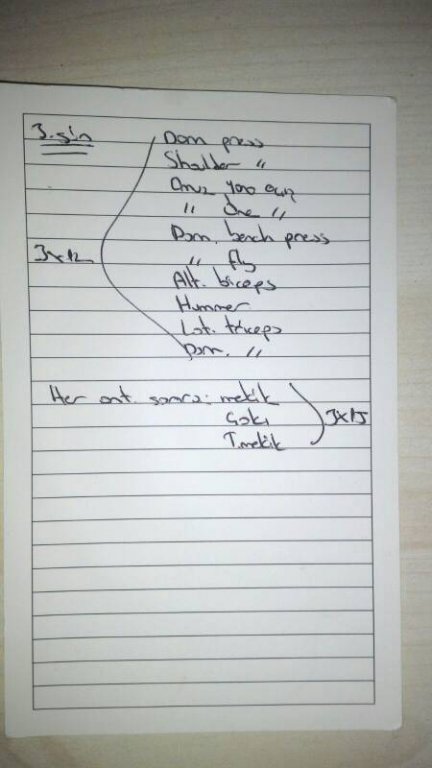 3. gün
Dam press
Shoulder "
Omuz yana açış
" öne "
3x12
Dam. bench press
" fly
Alt. biceps
Hummer
Lat. triceps
Dam. "
Her ant. sonra: mekik
T.mekik
3x15